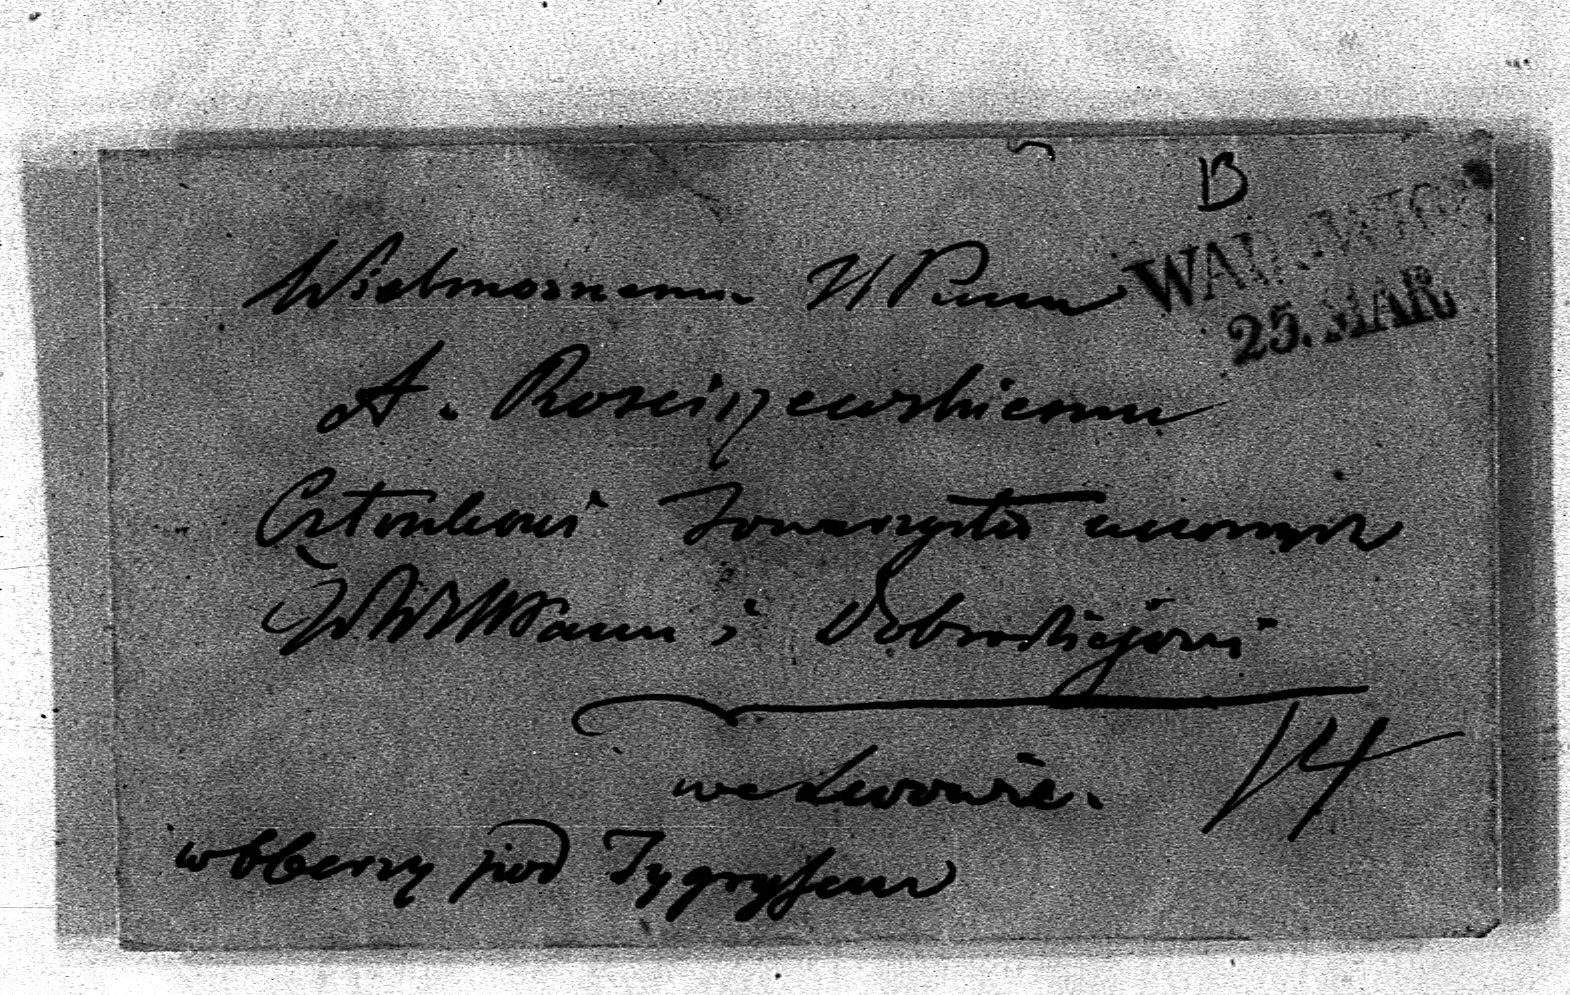 B
25. MAR.
Wielmoznemu W Panu
A. Rosciszewskiemu
Członkowi Towarzystw uczonych
WWM Panu i Dobrodziejowi
we Lwowie.
w Oberży pod Tygrysem